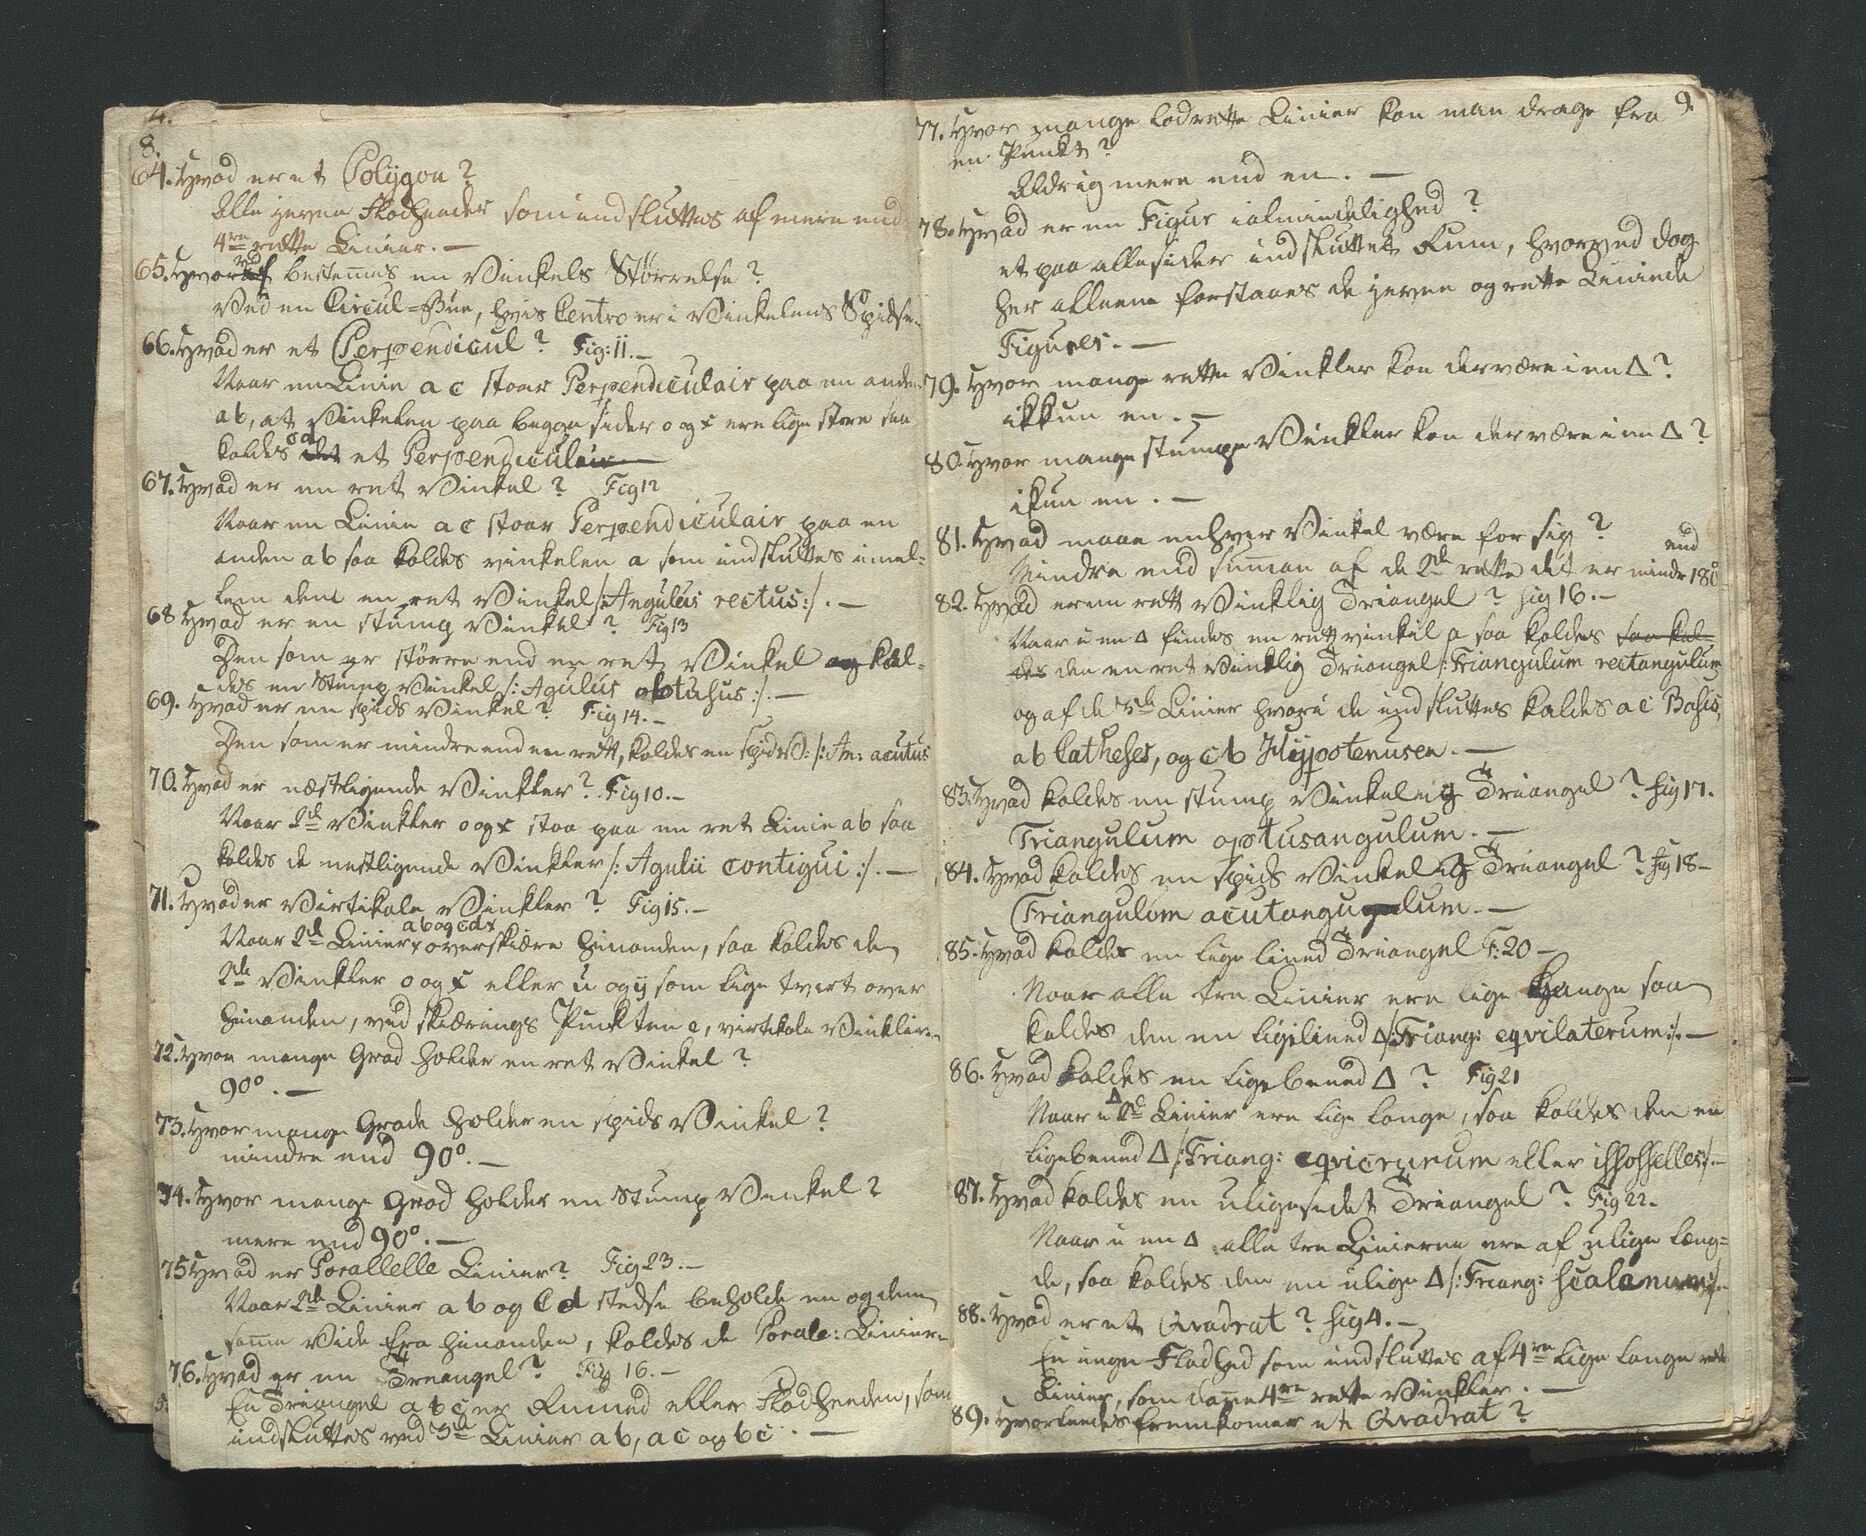 8.
64. Hvad er et Polÿgon?
Alle jevne Fladheeder som indsluttes af mere end
4re rette Linier. —
65. Hvorved bestemmes en Vinkels Størrelse?
Ved en Circul=Bue, hvis Centro er i Vinkelens Spidse.
66. Hvad er et Perpendicul? Fig: 11. —
Naar en Linie a c staar Perpendiculair paa en anden
a b, at Vinkelen paa begge sider o og x ere lige store saa
kaldes ad det et Perpendiculair
67. Hvad er en ret Vinkel? Fig 12
Naar en Linie a c staar Perpendiculair paa en
anden a b saa kaldes vinkelen a som indsluttes imel-
lem dem en ret Vinkel /: Angulus rectus :/. —
68 Hvad er en stump Vinkel? Fig 13
Den som er større end en ret Vinkel og kal-
des en Stump Vinkel /: Agulus obtusus :/. —
69. Hvad er en spids Vinkel? Fig 14. —
Den som er mindre end en rett, kaldes en spids V: /: An: acutus
70. Hvad er næstligende Vinkler? Fig 10. —
Naar 2de Vinkler o og x staa paa en ret Linie a b saa
kaldes de nestligende Vinkler /: Agulii contigui :/. —
71. Hvad er Virtikale Vinkler? Fig 15. —
a b og c d
Naar 2de Linier overskiære hinanden, saa kaldes de
2de Vinkler o og x eller u og ÿ som lige tvert over
hinanden, ved skiærings Punkten e, virtikale Vinkler. —
72. Hvor mange Grad holder en ret Vinkel?
90°. —
73. Hvor mange Grade holder en spids Vinkel?
mindre end 90°. —
74. Hvor mange Grad holder en Stump Vinkel?
mere end 90°. —
75 Hvad er Parallelle Linier? Fig 23. —
Naar 2de Linier a b og c d stedse beholde en og dem
samme Vide fra hinanden, kaldes de Parale: Linier.
76. Hvad er en Treangel? Fig 16. —
En Triangel a b c er Rumed eller Fladheeden, som
indsluttes ved 3de Linier a b, a c og b c. —
9.
77. Hvor mange lodrette Linier kan man drage fra
en Punkt?
Aldrig mere end en. —
78. Hvad er en Figur i almindelighed?
et paa alle sider indsluttet Rum, hvorved dog
her alleene forstaaes de jevne og rette Liniede
Figurer. —
79. Hvor mange rette Vinkler kan der være i en Δ?
ikkun en. —
80. Hvor mange stumpe Vinkler kan der være i en Δ?
ikun en. —
81. Hvad maae enhver Vinkel være for sig?
Mindre end summen af de 2de rette det er mindre end 180°
82. Hvad er en rett Vinklig Triangel? fig 16. —
Naar i en Δ findes en rett vinkel a saa kaldes saa kal-
des den en ret Vinklig Triangel /: Triangulum rectangulum
og af de 3de Linier hvori de indsluttes kaldes a c Basis,
a b Catheses, og c b Hÿpotenusen. —
83. Hvad kaldes en stump Vinkelig Triangel? fig 17.
Triangulum optusangulum. —
84. Hvad kaldes en spids Vinkelig Triangel? fig 18 —
Triangulum acutangulum. —
85. Hvad kaldes en lige lined Triangel F: 20 —
Naar alle tre Linier ere lige lange saa
kaldes dem en ligelined Δ /: Triang: eqvilaterum :/. —
86. Hvad kaldes en ligebened Δ? Fig 21
Naar i Δ 2de Linier ere lige lange, saa kaldes den en
ligebened Δ /: Triang: eqvicrurum eller issosselles :/. —
87. Hvad kaldes en uligesidet Triangel? Fig 22.
Naar i en Δ alle tre Linierne ere af ulige læng-
de, saa kaldes den en ulige Δ /: Triang: scalenum :/.
88. Hvad er et Qvadrat? fig 4. —
En jevn Fladhed som indsluttes af 4re lige lange rette
Linier, som danne 4re rette Vinkler. —
89. Hvorledes fremkommer et Qvadrat?